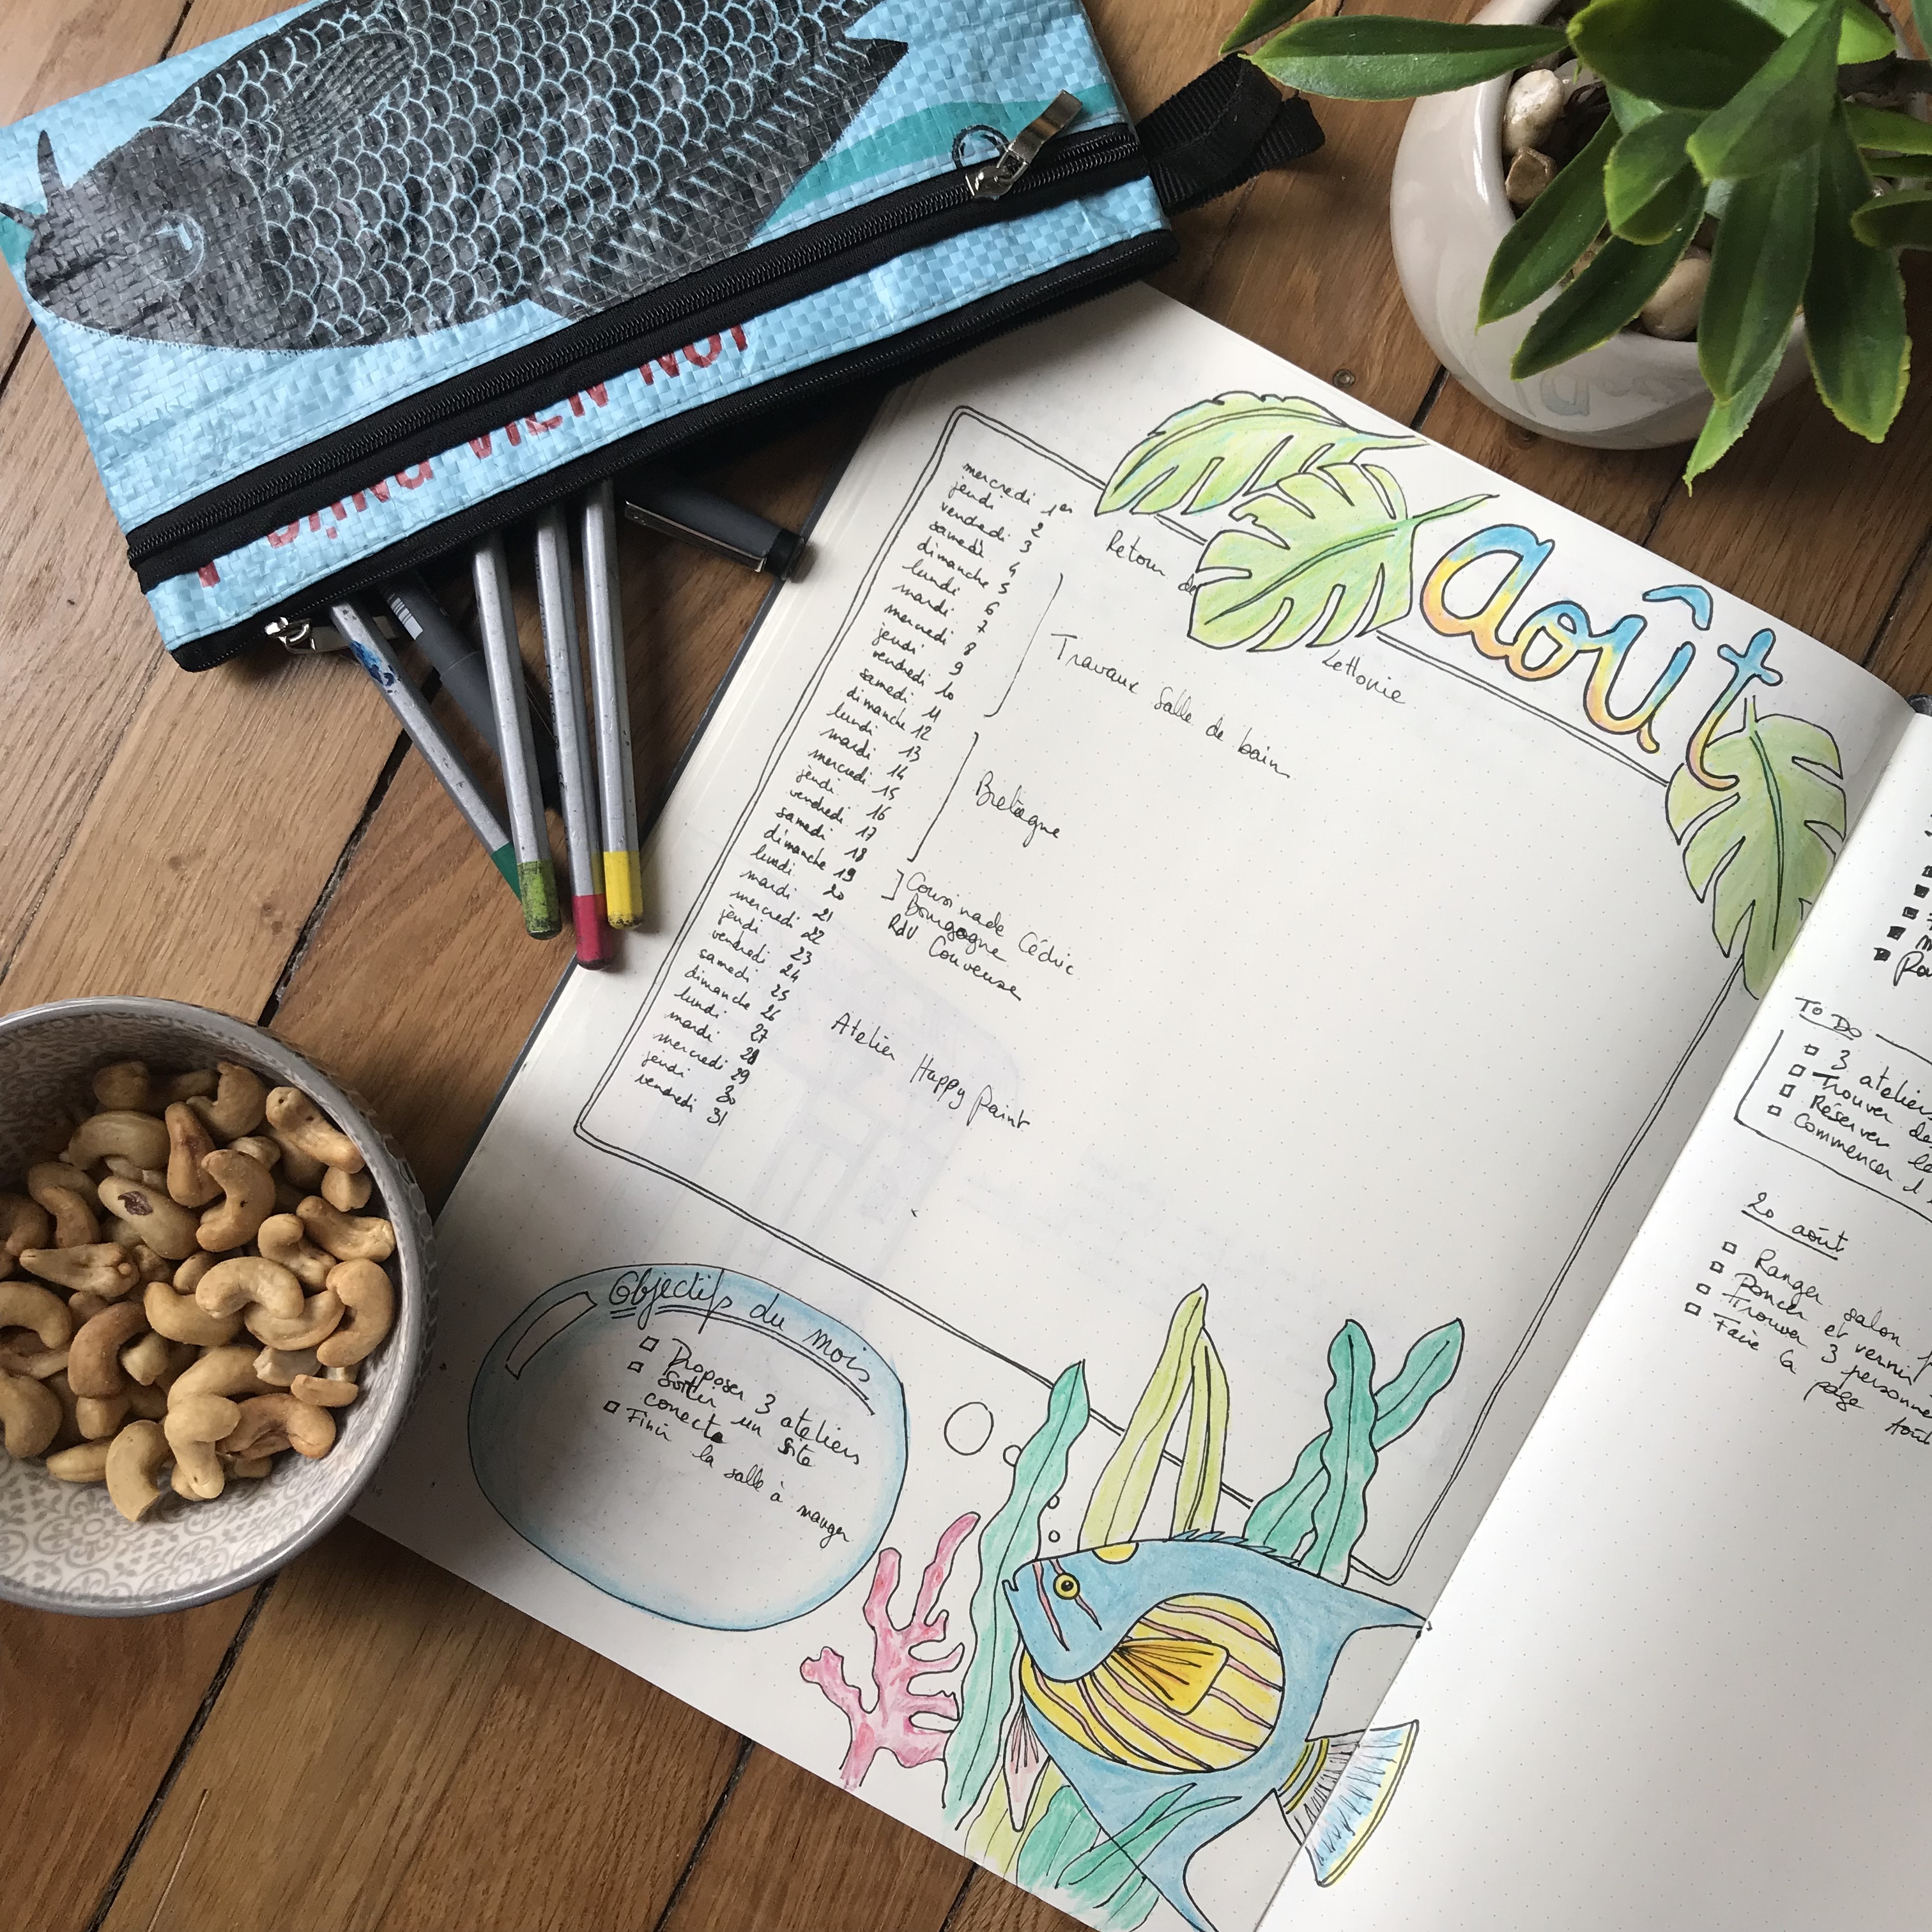 août
mercredi 1er
jeudi 2
vendredi 3
samedi 4
dimanche 5
lundi 6
mardi 7
mercredi 8
jeudi 9
vendredi 10
samedi 11
dimanche 12
lundi 13
mardi 14
mercredi 15
jeudi 16
vendredi 17
samedi 18
dimanche 19
lundi 20
mardi 21
mercredi 22
jeudi 23
vendredi 24
samedi 25
dimanche 26
lundi 27
mardi 28
mercredi 29
jeudi 30
vendredi 31
Retour de
Lettonie
Travaux salle de bain
Bretagne
Cousinade Cédric
Bourgogne
RdV Couveuse
Atelier Happy Paint
Objectifs du mois
Proposer 3 ateliers
Sortir un site
conecte
Finir la salle à manger
TO DO
3 ateliers
Trouver de
Réserver le
Commencer d
20 août
Ranger salon
Poncer et vernir
Trouver 3 personne
Faire la page Août